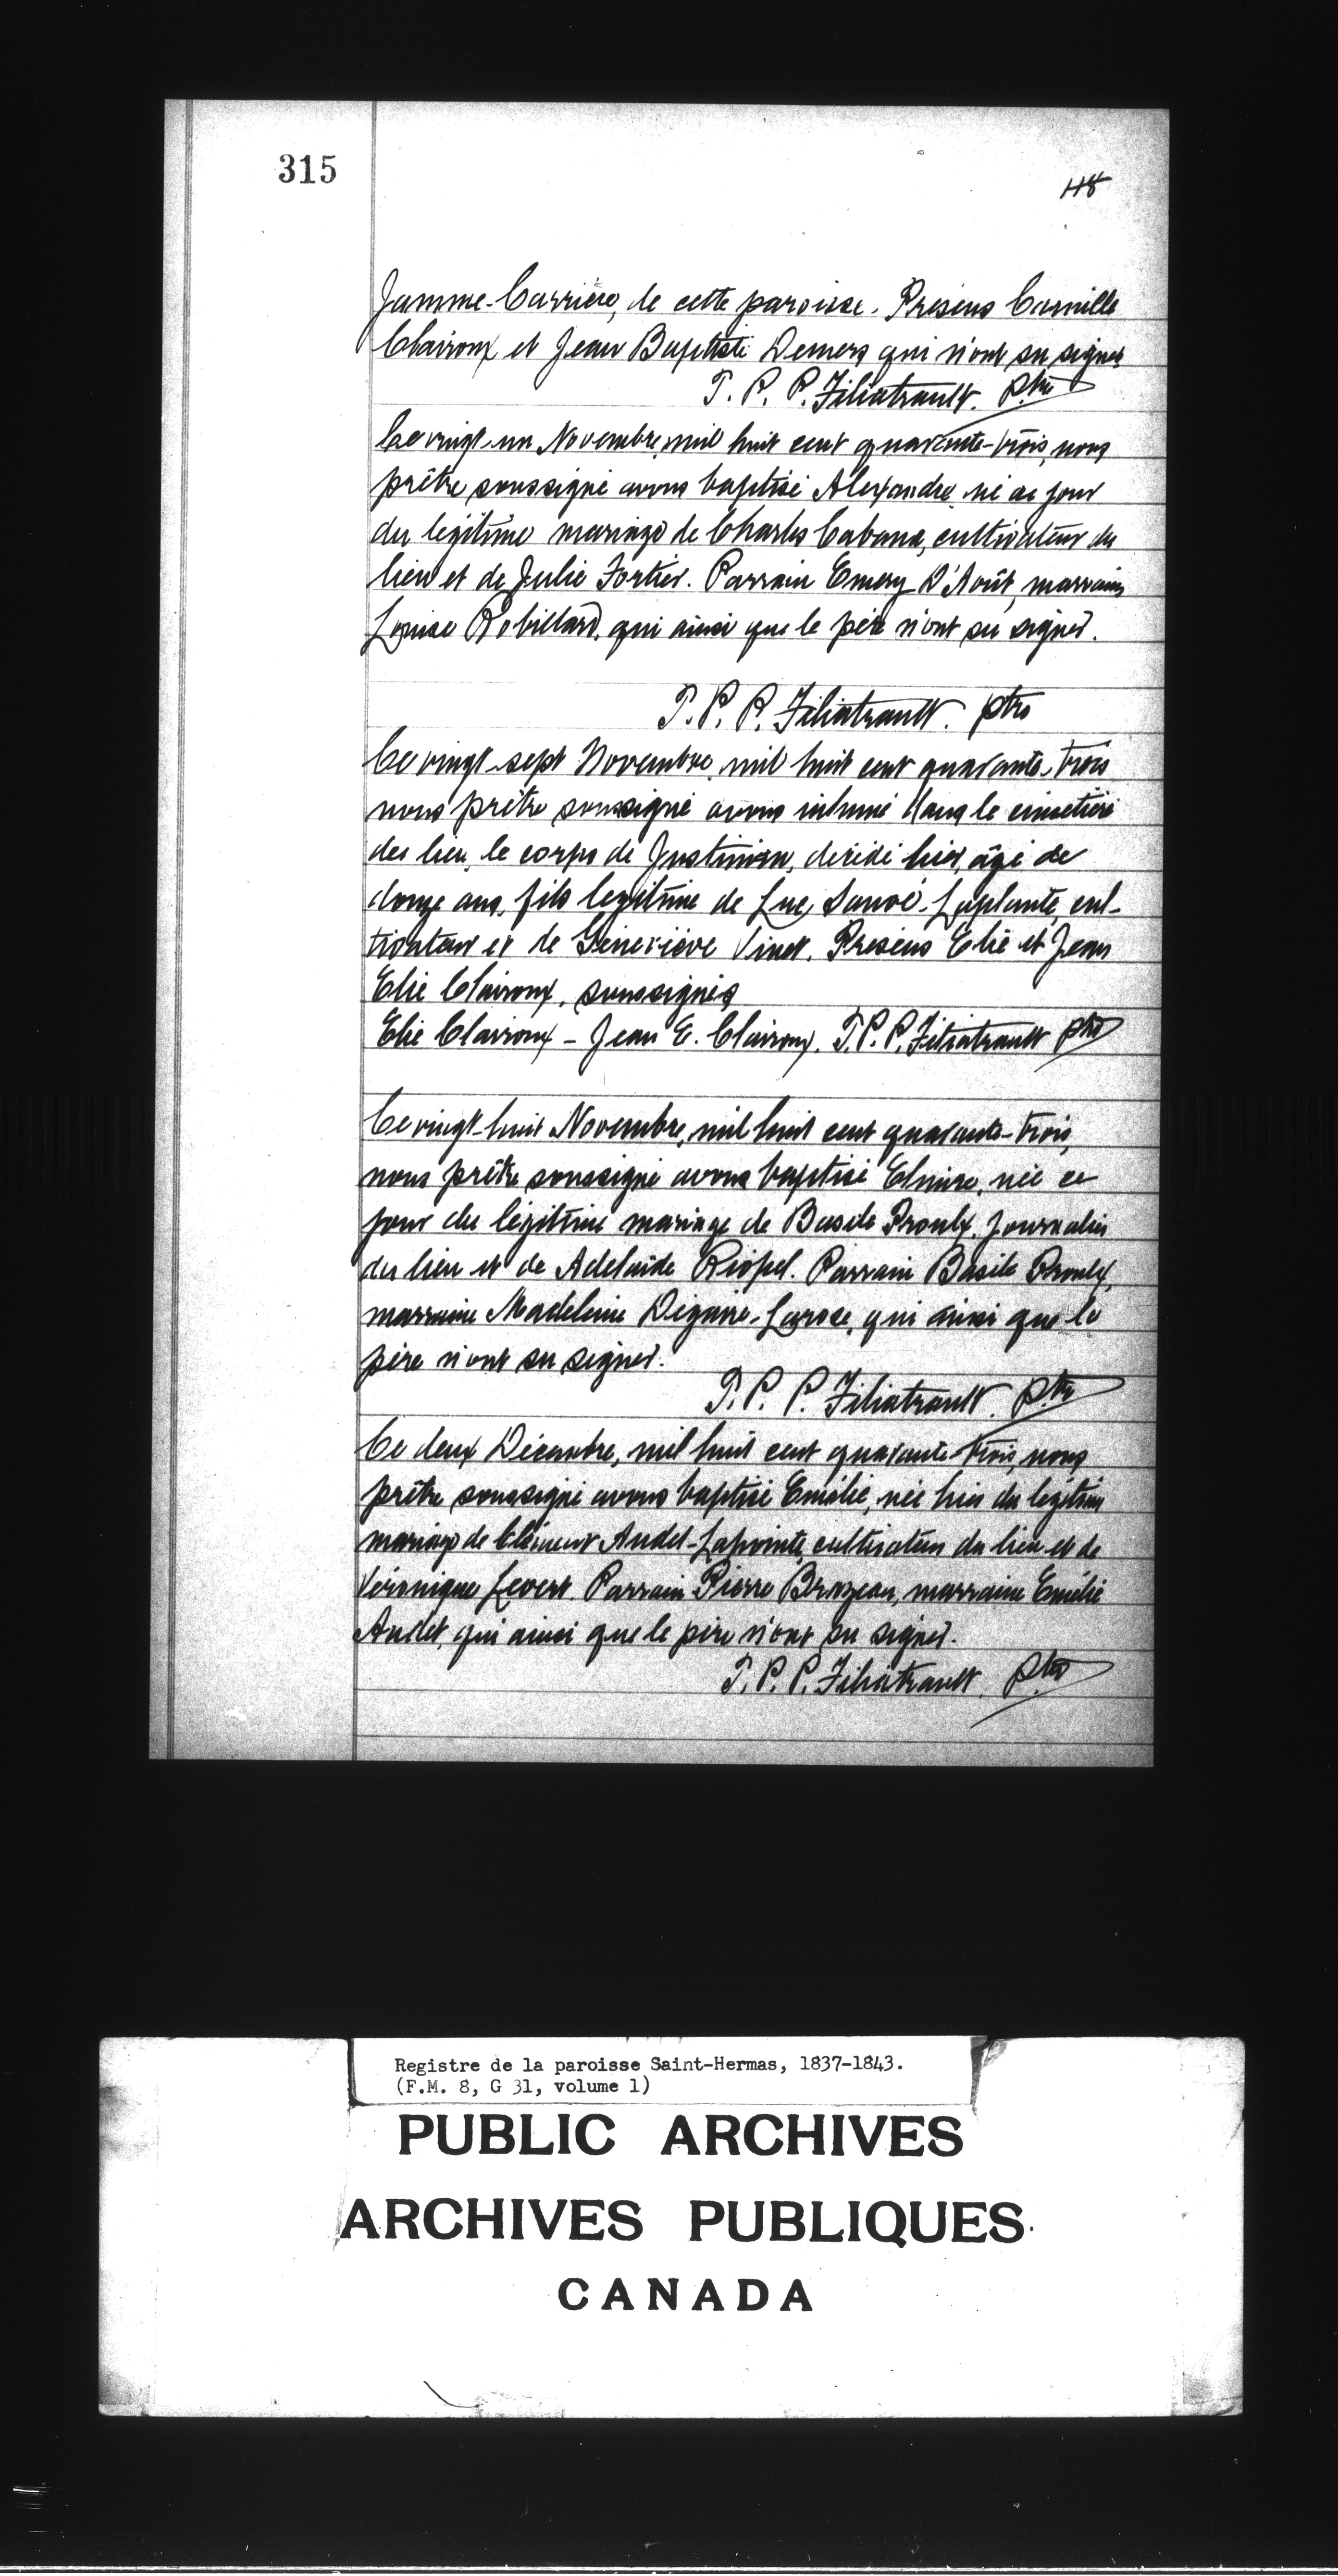 315
118
Jamme-Carrière, de cette paroisse. Présens Camille
Clairoux et Jean Baptiste Demers qui n'ont su signer
T. P. P. Filiatrault. Ptre
Ce vingt-un Novembre, mil huit cent quarante-trois, nous
prêtre soussigné avons baptisé Alexandre, né ce jour
du légitime mariage de Charles Cabana, cultivateur du
lieu et de Julie Fortier. Parrain Emery D'Août, marraine
Louise Robillard, qui ainsi que le père n'ont su signer.
T. P. P. Filiatrault. ptre
Ce vingt-sept Novembre, mil huit cent quarante-trois
nous prêtre soussigné avons inhumé dans le cimetière
du lieu, le corps de Justinien, décédé hier, âgé de
douze ans, fils légitime de Luc Sauvé-Laplante, cul-
tivateur et de Géneviève Vinet. Présens Elie et Jean
Elie Clairoux, soussignés
Elie Clairoux - Jean E. Clairoux. T. P. P. Filiatrault ptre
Ce vingt-huit Novembre, mil huit cent quarante-trois,
nous prêtre soussigné avons baptisé Elmire, née ce
jour du légitime mariage de Basile Proulx, journalier
du lieu et de Adelaïde Riopel. Parrain Basile Proulx,
marraine Madeleine Digaire-Larose, qui ainsi que le
père n'ont su signer.
T. P. P. Filiatrault. Ptre
Ce deux Décembre, mil huit cent quarante-trois, nous
prêtre soussigné avons baptisé Emélie, née hier du légitime
mariage de Clément Audet-Lapointe, cultivateur du lieu et de
Véronique Levert. Parrain Pierre Brazeau, marraine Emélie
Audet, qui ainsi que le père n'ont su signer.
T. P. P. Filiatrault. Ptre
Registre de la paroisse Saint-Hermas, 1837-1843.
(F.M. 8, G 31, volume 1)
PUBLIC ARCHIVES
ARCHIVES PUBLIQUES
CANADA